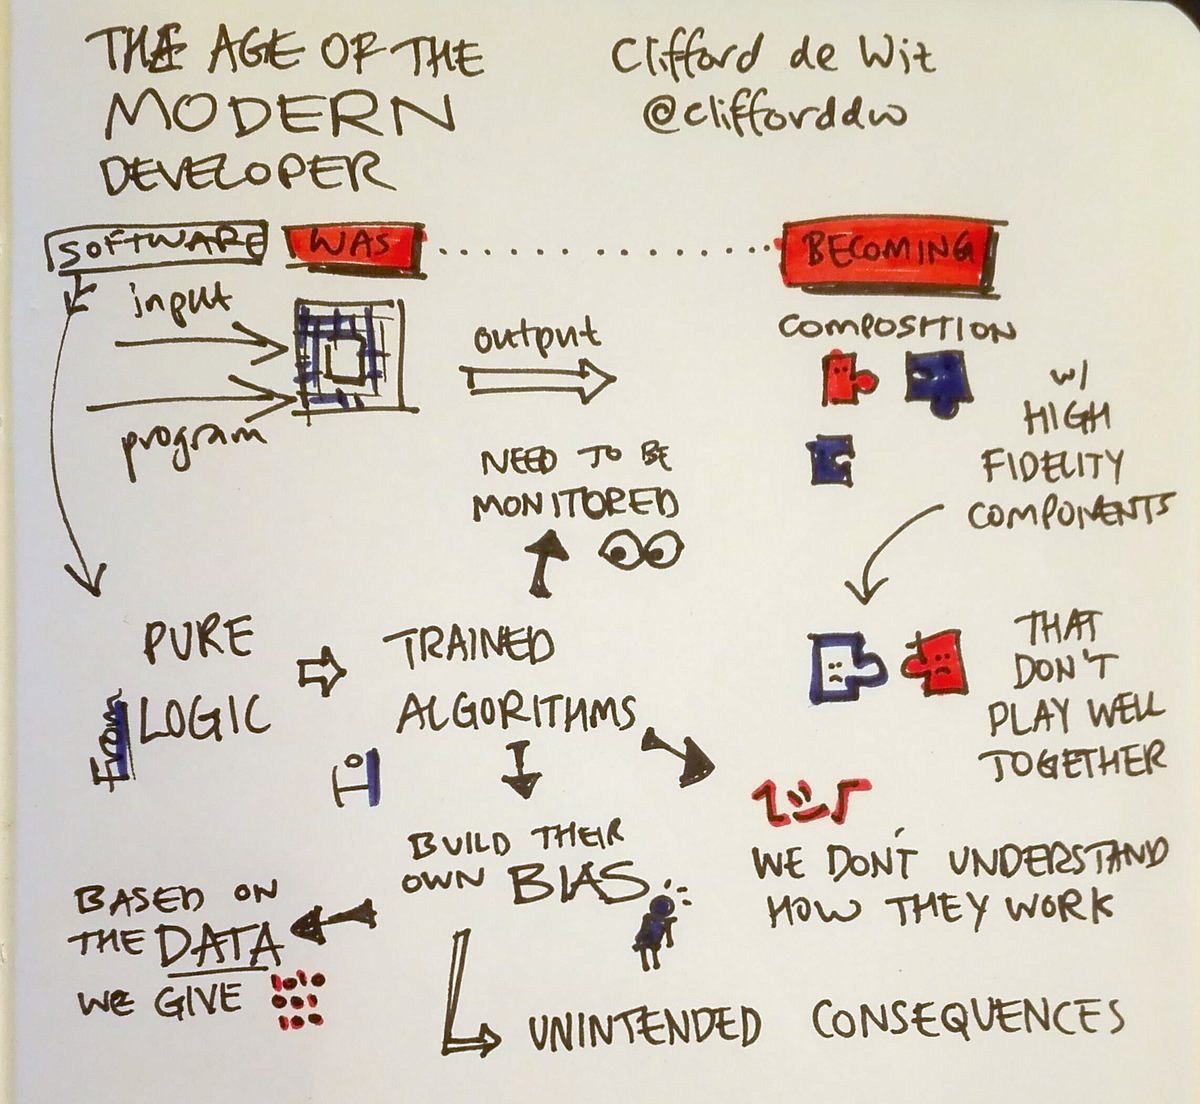 THE AGE OF THE
MODERN
DEVELOPER
Clifford de Wit
@clifforddw
SOFTWARE WAS BECOMING
input
program
output
COMPOSITION
w/
HIGH
FIDELITY
COMPONENTS
THAT
DON'T
PLAY WELL
TOGETHER
NEED TO BE
MONITORED
From
PURE
LOGIC
TRAINED
ALGORITHMS
BUILD THEIR
OWN BIAS
WE DON'T UNDERSTAND
HOW THEY WORK
BASED ON
THE DATA
WE GIVE
UNINTENDED CONSEQUENCES